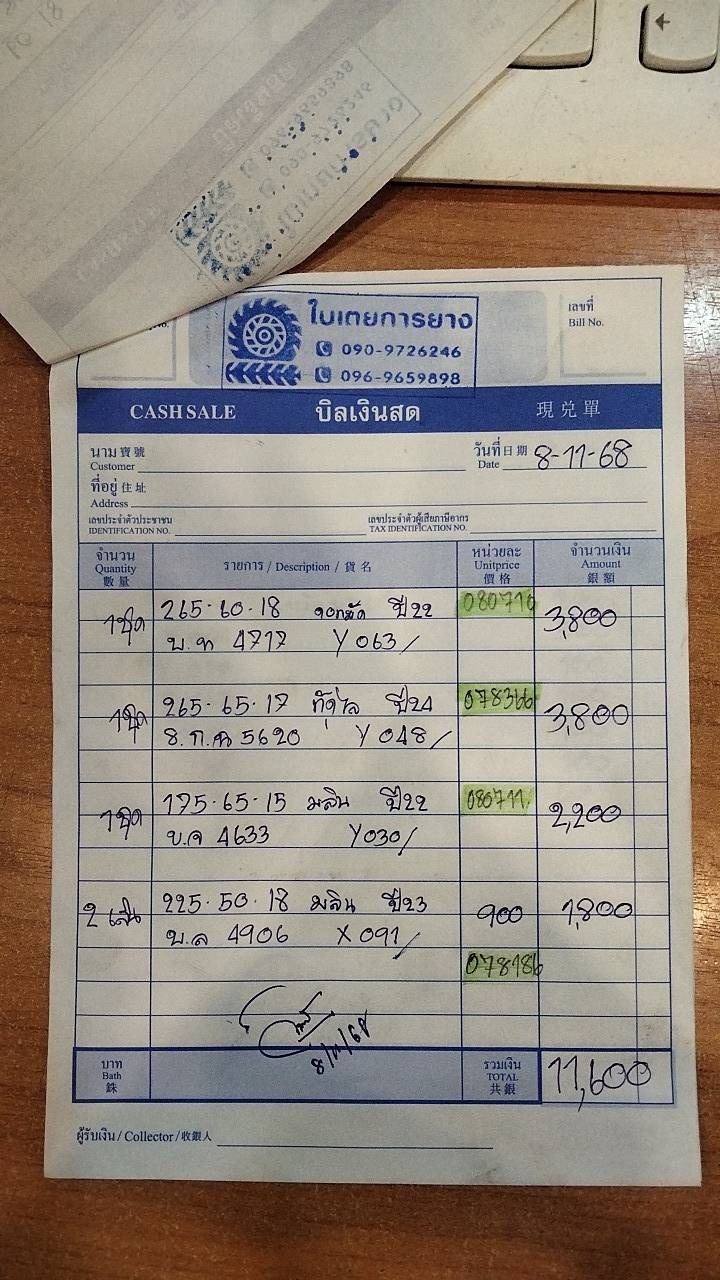 ใบเตยการยาง
090-9726246
096-9659898
เลขที่
Bill No.
CASH SALE บิลเงินสด 現兌單
นาม 寶號
Customer
วันที่ 日期
Date 8-11-68
ที่อยู่ 住址
Address
เลขประจำตัวประชาชน
IDENTIFICATION NO.
เลขประจำตัวผู้เสียภาษีอากร
TAX IDENTIFICATION NO.
จำนวน
Quantity
數量
รายการ / Description / 貨名
หน่วยละ
Unitprice
價格
จำนวนเงิน
Amount
銀額
1ชุด 265-60-18 ปี22 3,800
4717 Y063/
1ชุด 265-65-17 ปี24 078366 3,800
5620 Y048/
1ชุด 195-65-15 มลิน ปี22 080711 2,200
4633 Y030/
2 เส้น 225-50-18 มลิน ปี23 900 1,800
บ.ล 4906 X091/
078186
8/11/68
บาท
Bath
銖
รวมเงิน
TOTAL
共銀
11,600
ผู้รับเงิน / Collector / 收銀人